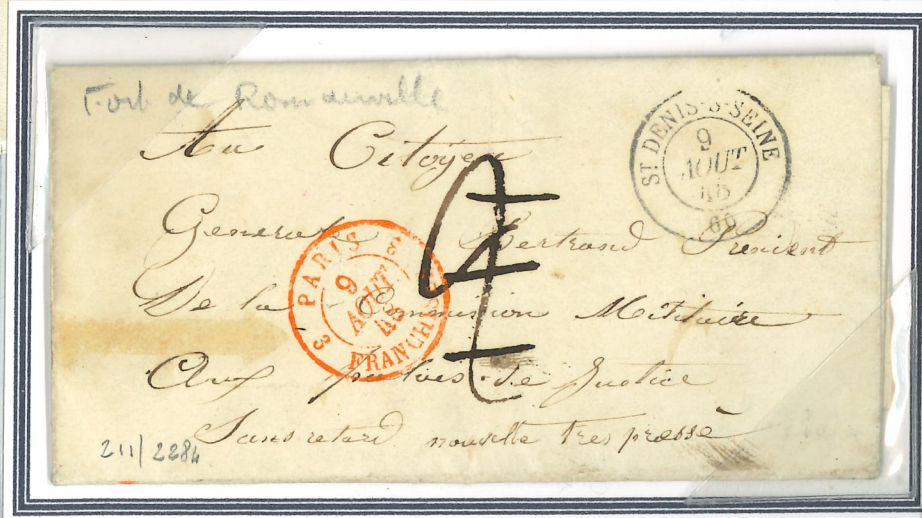 Fort de Romainville
Au Citoyen
General Bertrand President
De la Commission Militaire
Aux palais de Justice
Sans retard nouvelle tres pressé
211/2284
ST DENIS-S-SEINE
9
AOUT
48
66
3 PARIS 3
9
AOUT
48
FRANCHISE